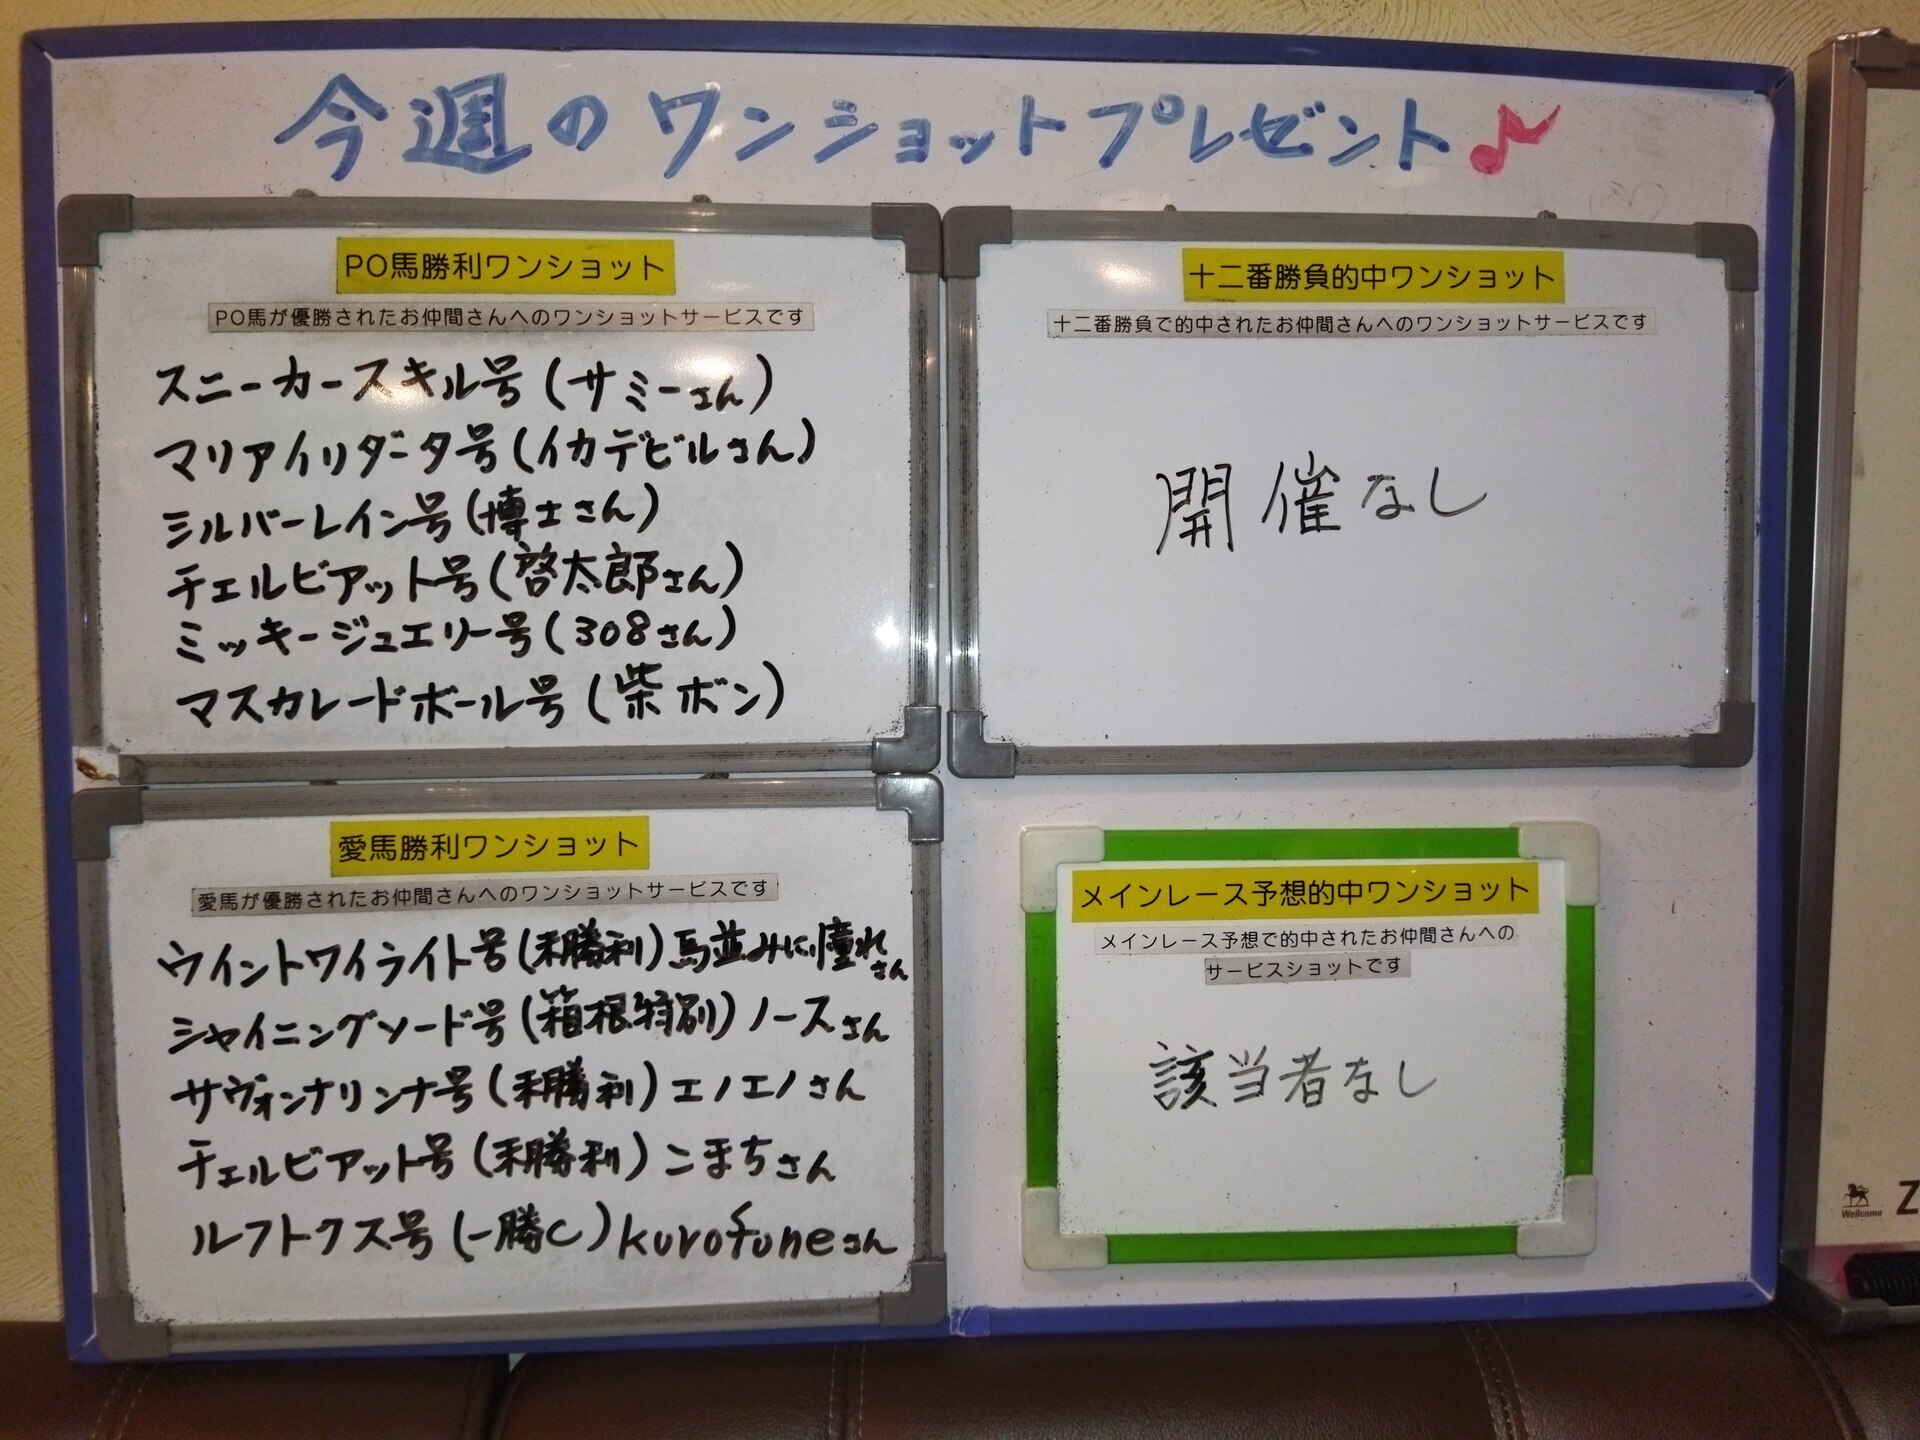 今週のワンショットプレゼント♪
PO馬勝利ワンショット
PO馬が優勝されたお仲間さんへのワンショットサービスです
スニーカースキル号(サミーさん)
マリアイリダータ号(イカデビルさん)
シルバーレイン号(博士さん)
チェルビアット号(啓太郎さん)
ミッキージュエリー号(308さん)
マスカレードボール号(柴ボン)
十二番勝負的中ワンショット
十二番勝負で的中されたお仲間さんへのワンショットサービスです
開催なし
愛馬勝利ワンショット
愛馬が優勝されたお仲間さんへのワンショットサービスです
ウイントワイライト号(未勝利)馬並みに憧れさん
シャイニングソード号(箱根特別)ノースさん
サヴォンナリンナ号(未勝利)エノエノさん
チェルビアット号(未勝利)こまちさん
ルフトクス号(一勝C)kurofuneさん
メインレース予想的中ワンショット
メインレース予想で的中されたお仲間さんへの
サービスショットです
該当者なし
Wellcome
Z